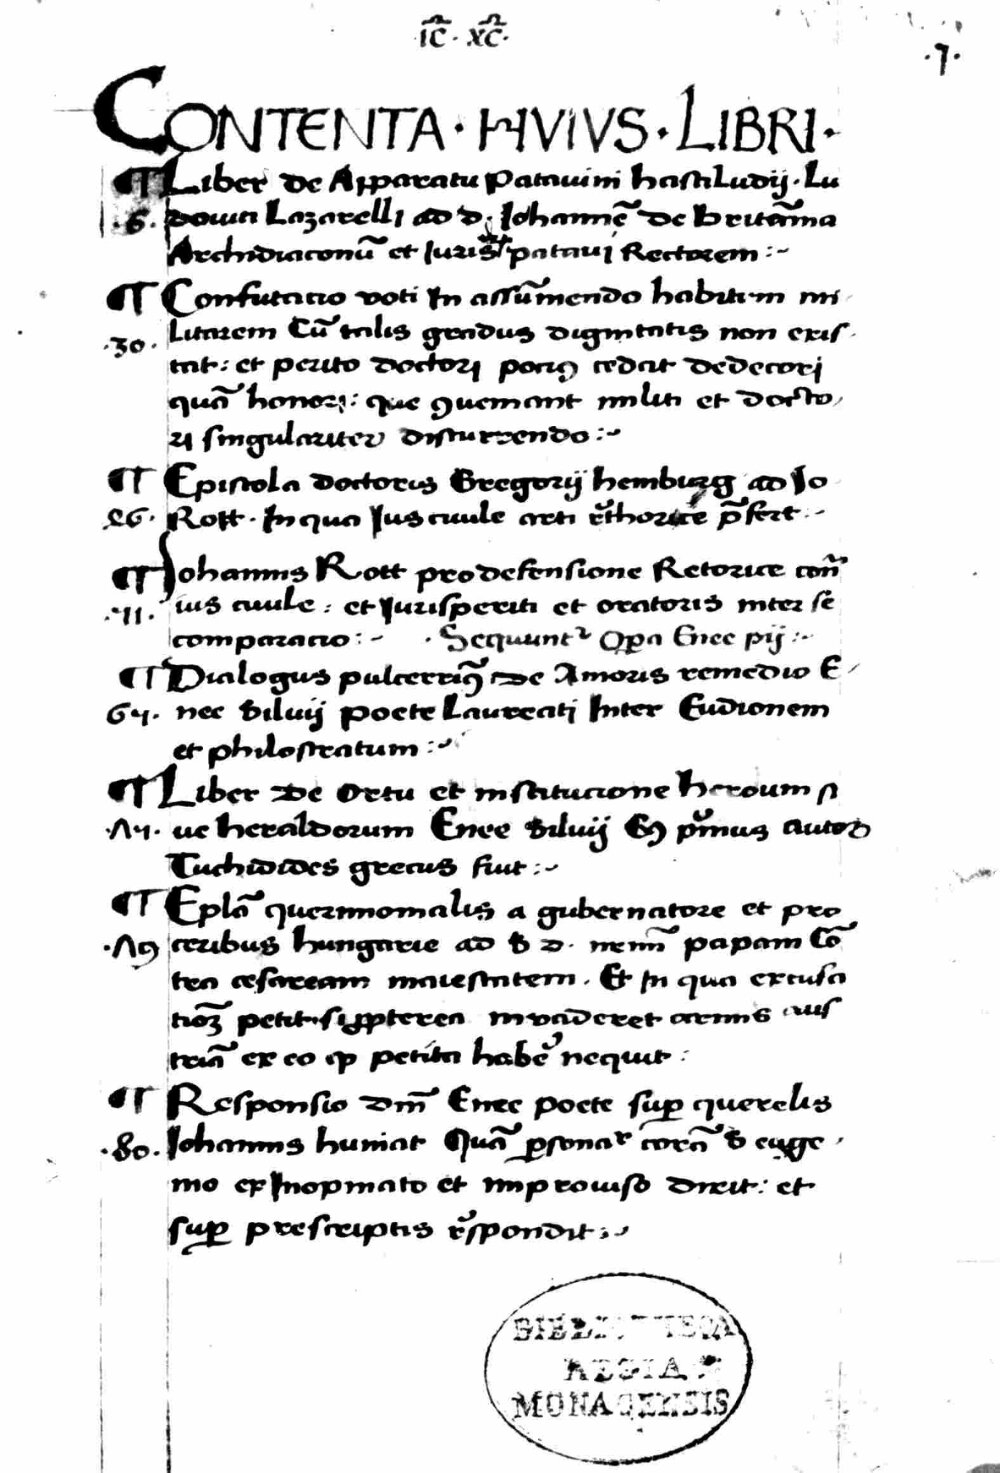 ιC̅ · XC̅ ·
· 7 ·
CONTENTA · HVIVS · LIBRI ·
¶ Liber de Apparatu Patauini hastiLudij · Lu
· 6 · douici Lazarelli ad d. Iohannē de Britāina
Archidiaconū et Iuristaꝝ patauij Rectorem :~
¶ Confutacio voti In assūmendo habitum mi
· 30 · Litarem Cū talis gradus dignitatis non exis
tat : et perito doctori pocius cedat dedecori
quā honori : que ꝯueniant militi et docto
ri singulariter discurrendo :~
¶ Epistola doctoris Gregorij hemburg ad Io
Rott · In qua Ius ciuile arti rethorice p̄fert :~
¶ Iohannis Rott pro defensione Retorice con̄
ius ciuile : et Iurisperiti et oratoris inter se
comparacio :~ · Sequunt᷑ Opa Enee pij :~
¶ Dialogus pulcerrimꝰ de Amoris remedio E
nee Siluij poete Laureati Inter Eudionem
et philostratum :~
¶ Liber de Ortu et institucione heroum si
ue heraldorum Enee Siluij Cꝰ primus autor
Tuchidides grecus fuit :~
¶ Eplā querimonialis a gubernatore et pro
ceribus hungarie ad S D. papam Cō
tra cesaream maiestatem . Et In qua excusa
tioꝫ petit · si ꝓpterea inuaderet armis aus
triā ex eo ꝙ petita habē nequit :
¶ Responsio dn̄i Enee poete suꝑ querelis
· 80 · Iohannis huniat Quā ꝑsonar᷑ corā S euge
nio ex Inopinato et improuiso dixit : et
suꝑ prescriptis respondit :~
BIBLIOTHECA
REGIA
MONACENSIS